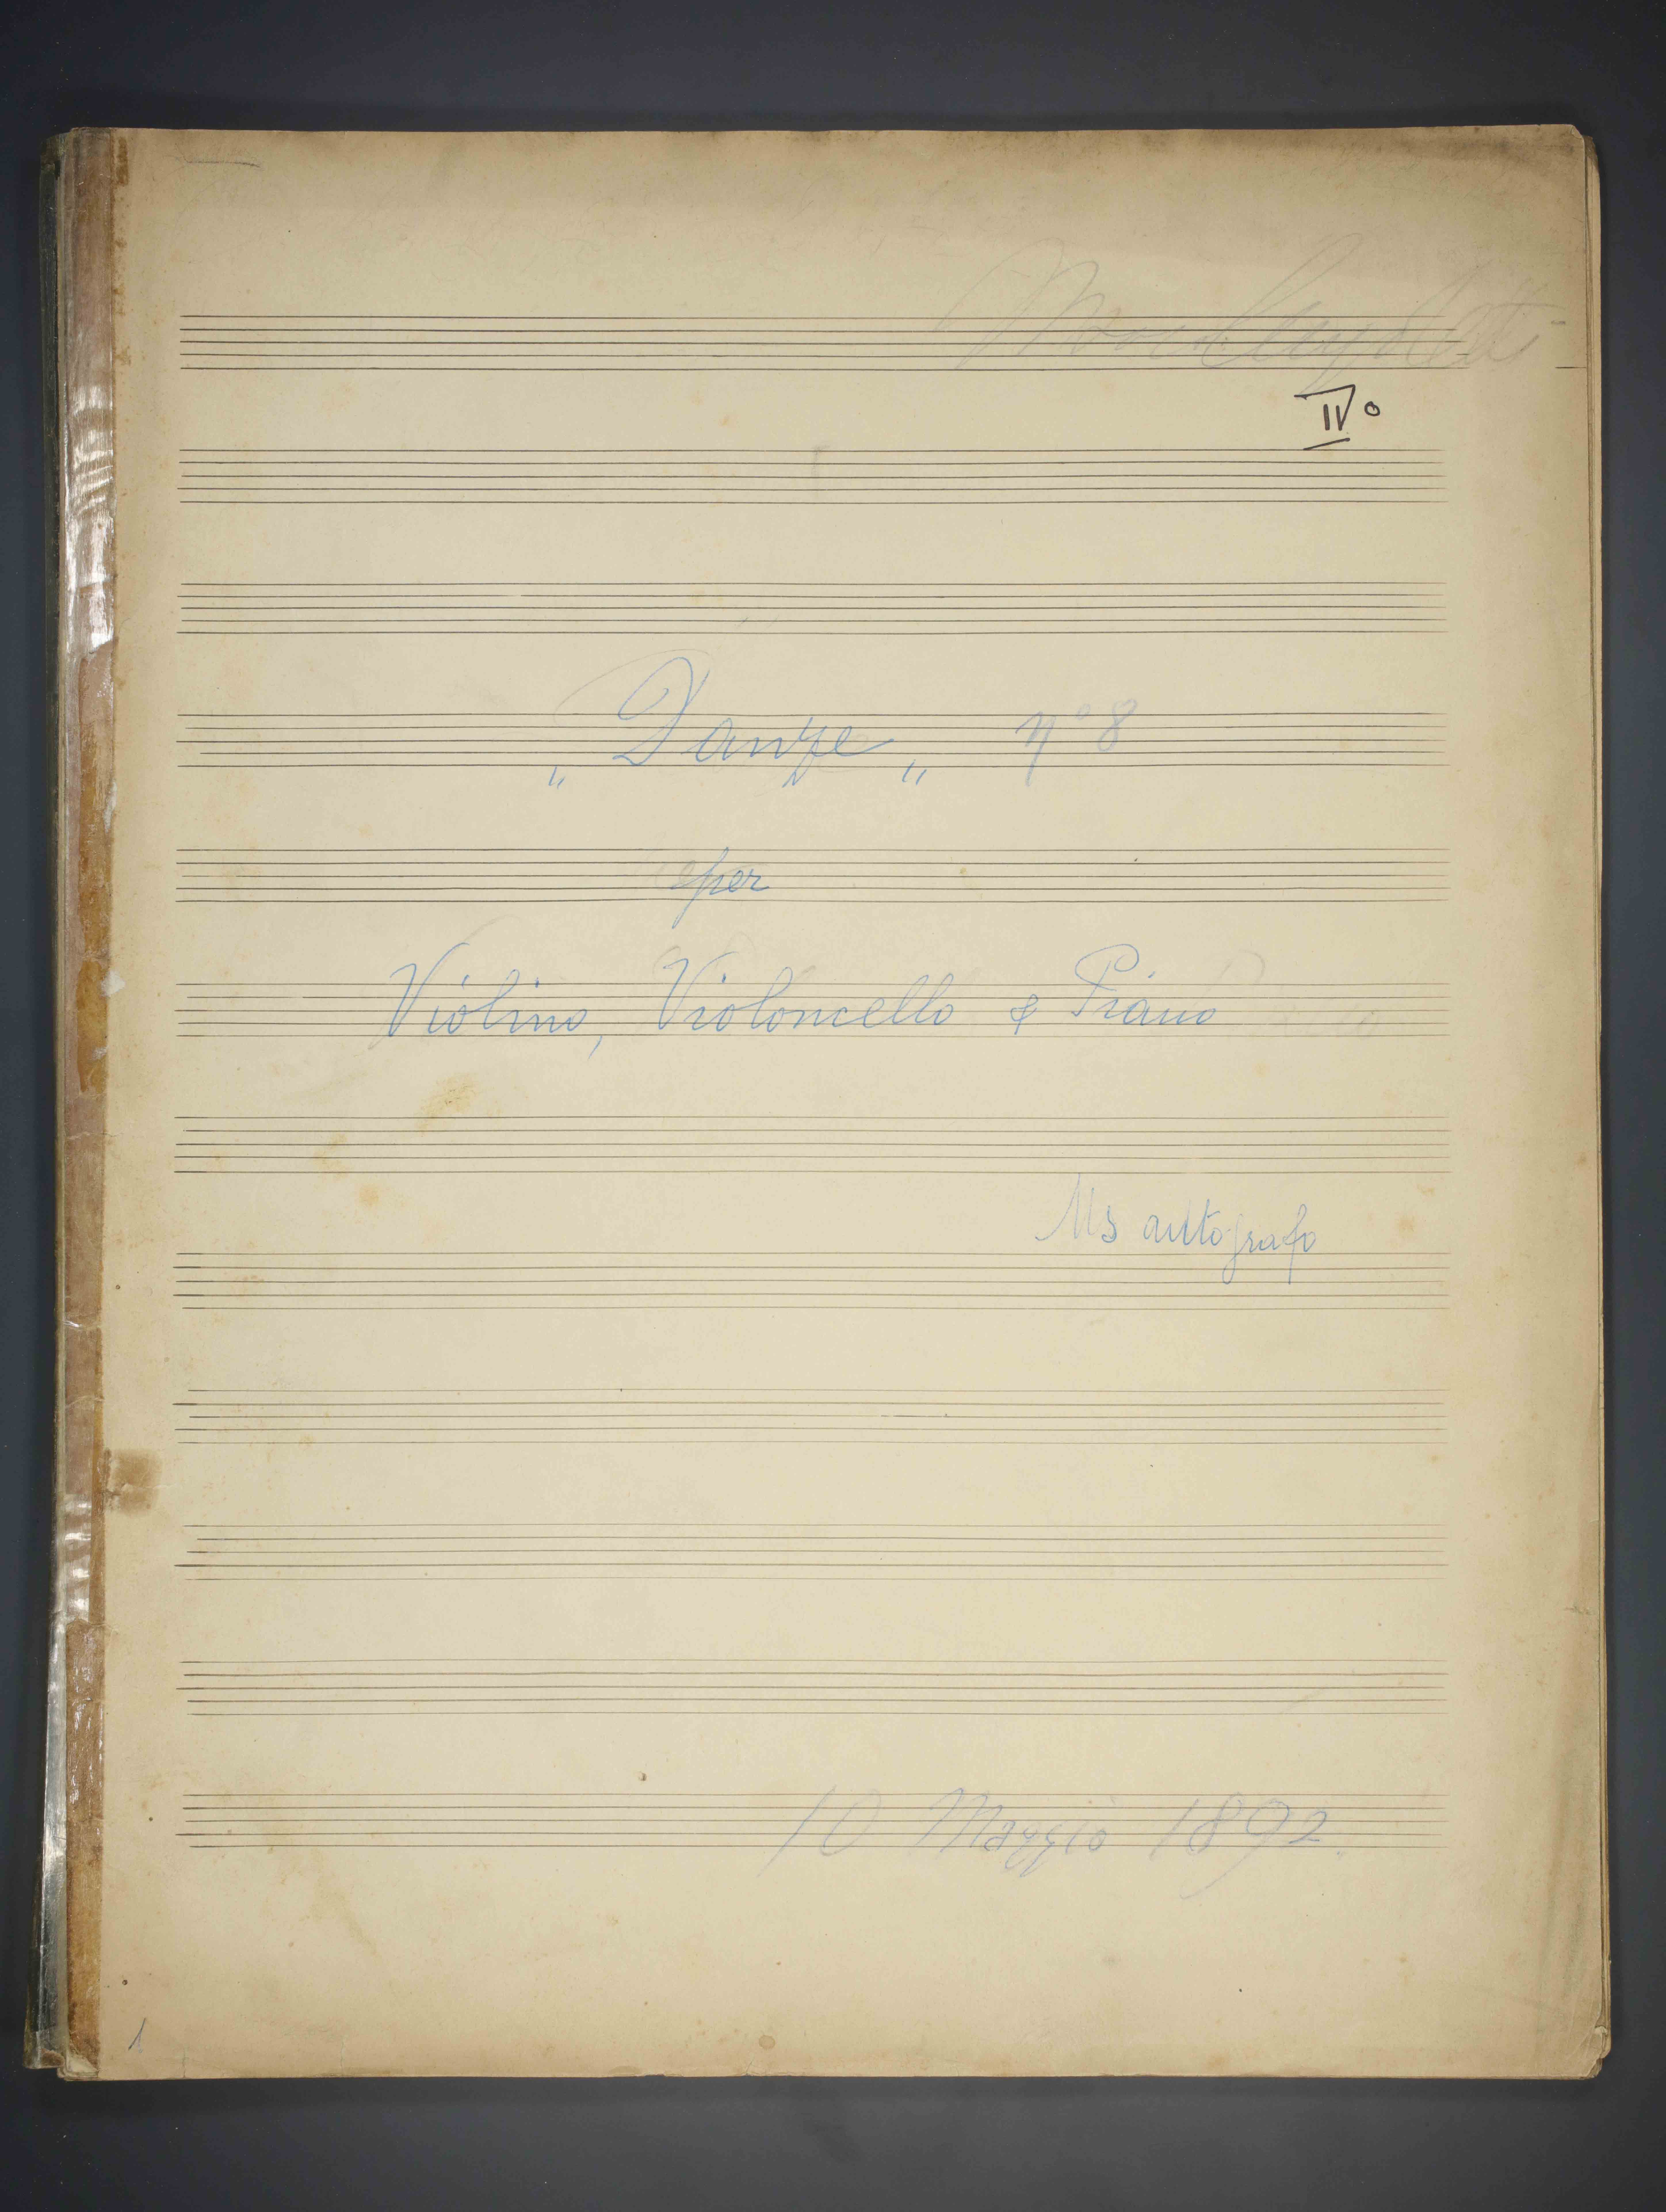 IV°
„Danze„ N° 8
per
Violino, Violoncello & Piano
Ms autografo
10 Maggio 1892
1